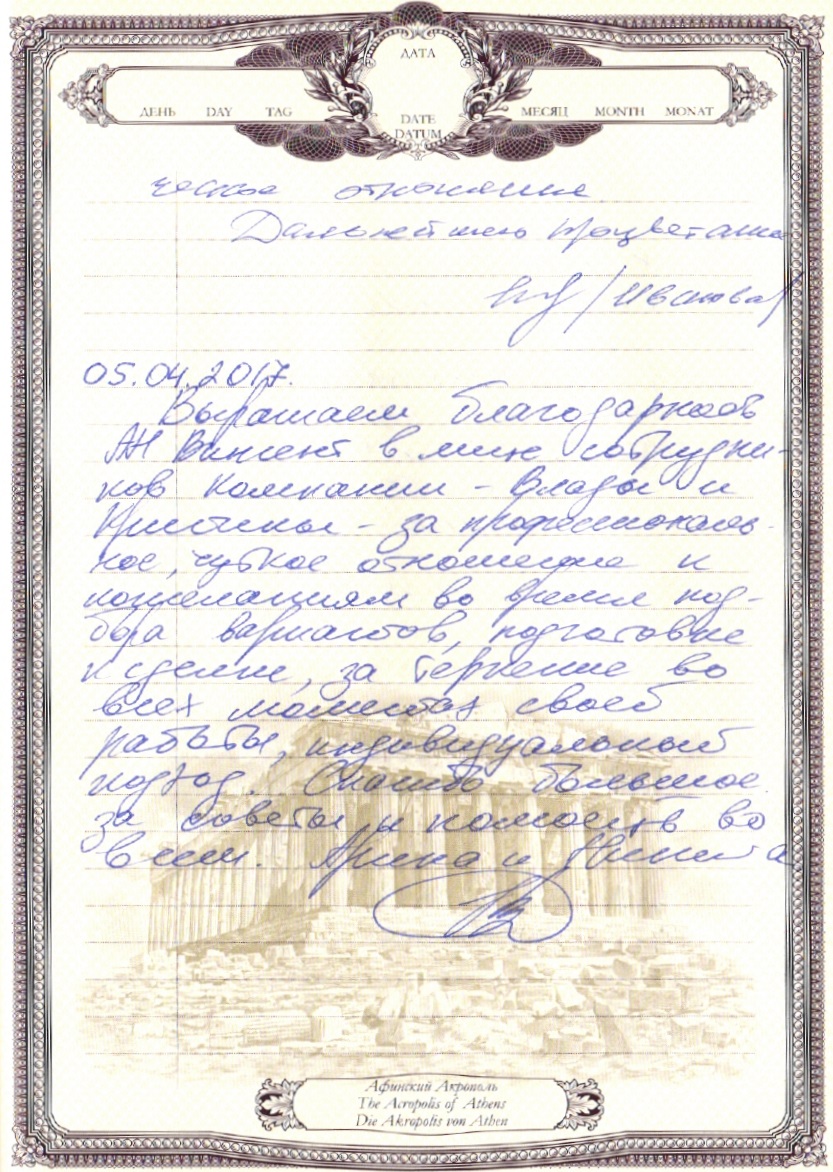 ДАТА
ДЕНЬ DAY TAG
DATE
DATUM
МЕСЯЦ MONTH MONAT
ческое отношение
Дальнейшего процветания
/Иванова/
05.04.2017.
Выражаем благодарность
АН Винсент в лице сотрудни-
ков компании - Влады и
Кристины - за профессиональ-
ное, чуткое отношение к
пожеланиям во время под-
бора вариантов, подготовке
к сделке, за терпение во
всех моментах своей
работы, индивидуальный
подход. Спасибо большое
за советы и помощь во
всем. Арина и Никита
Афинский Акрополь
The Acropolis of Athens
Die Akropolis von Athen